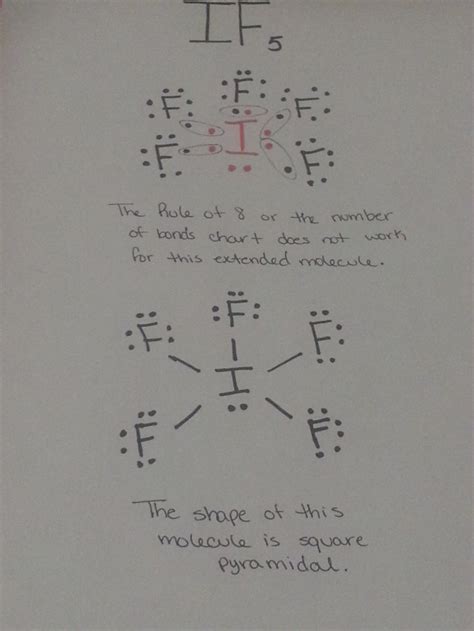 IF5
F
F F
I
F F
The Rule of 8 or the number
of bonds chart does not work
for this extended molecule.
F
F F
I
F F
The shape of this
molecule is square
pyramidal.